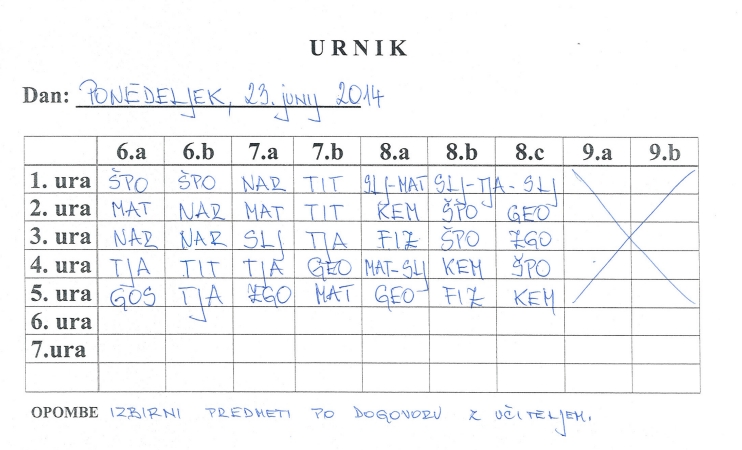 URNIK
Dan: PONEDELJEK, 23. junij 2014
6.a 6.b 7.a 7.b 8.a 8.b 8.c 9.a 9.b
1. ura ŠPO ŠPO NAR TIT SLJ-MAT SLJ-TJA-SLJ
2. ura MAT NAR MAT TIT KEM ŠPO GEO
3. ura NAR NAR SLJ TJA FIZ ŠPO ZGO
4. ura TJA TIT TJA GEO MAT-SLJ KEM ŠPO
5. ura GOS TJA ZGO MAT GEO FIZ KEM
6. ura
7.ura
OPOMBE IZBIRNI PREDMETI PO DOGOVORU Z UČITELJEM.